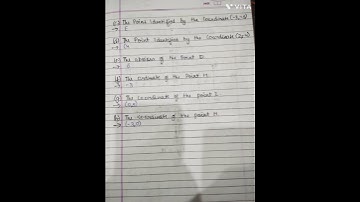 VITA
(c) The Point Identified by the Coordinate (-3,-5)
→ E
(d) The Point Identified by the Coordinate (2,-4)
→ G
(e) The abscissa of the Point D.
→ 6
(f) The ordinate of the Point H.
→ -3
(g) The Coordinate of the point L
→ (0,5)
(h) The Co-ordinate of the point M
→ (-3,0)